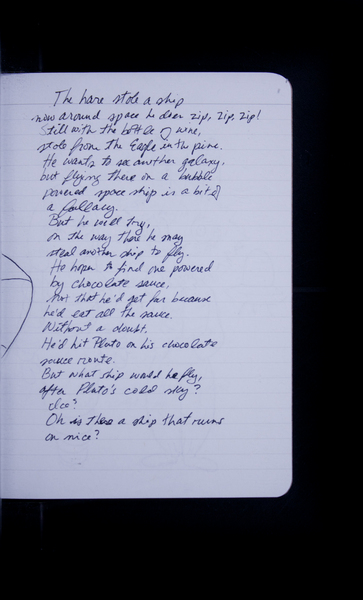 The hare stole a ship
now around space he does zip, zip, zip!
Still with the bottle of wine,
stole from the Eagle in the pine.
He wants to see another galaxy,
but flying there on a bubble
powered space ship is a bit of
a fallacy.
But he will try,
on the way there he may
steal another ship to fly.
He hopes to find one powered
by chocolate sauce,
Not that he'd get far because
he'd eat all the sauce.
Without a doubt.
He'd hit Pluto on his chocolate
sauce route.
But what ship would he fly,
after Pluto's cold sky?
Ice?
Oh is there a ship that runs
on nice?